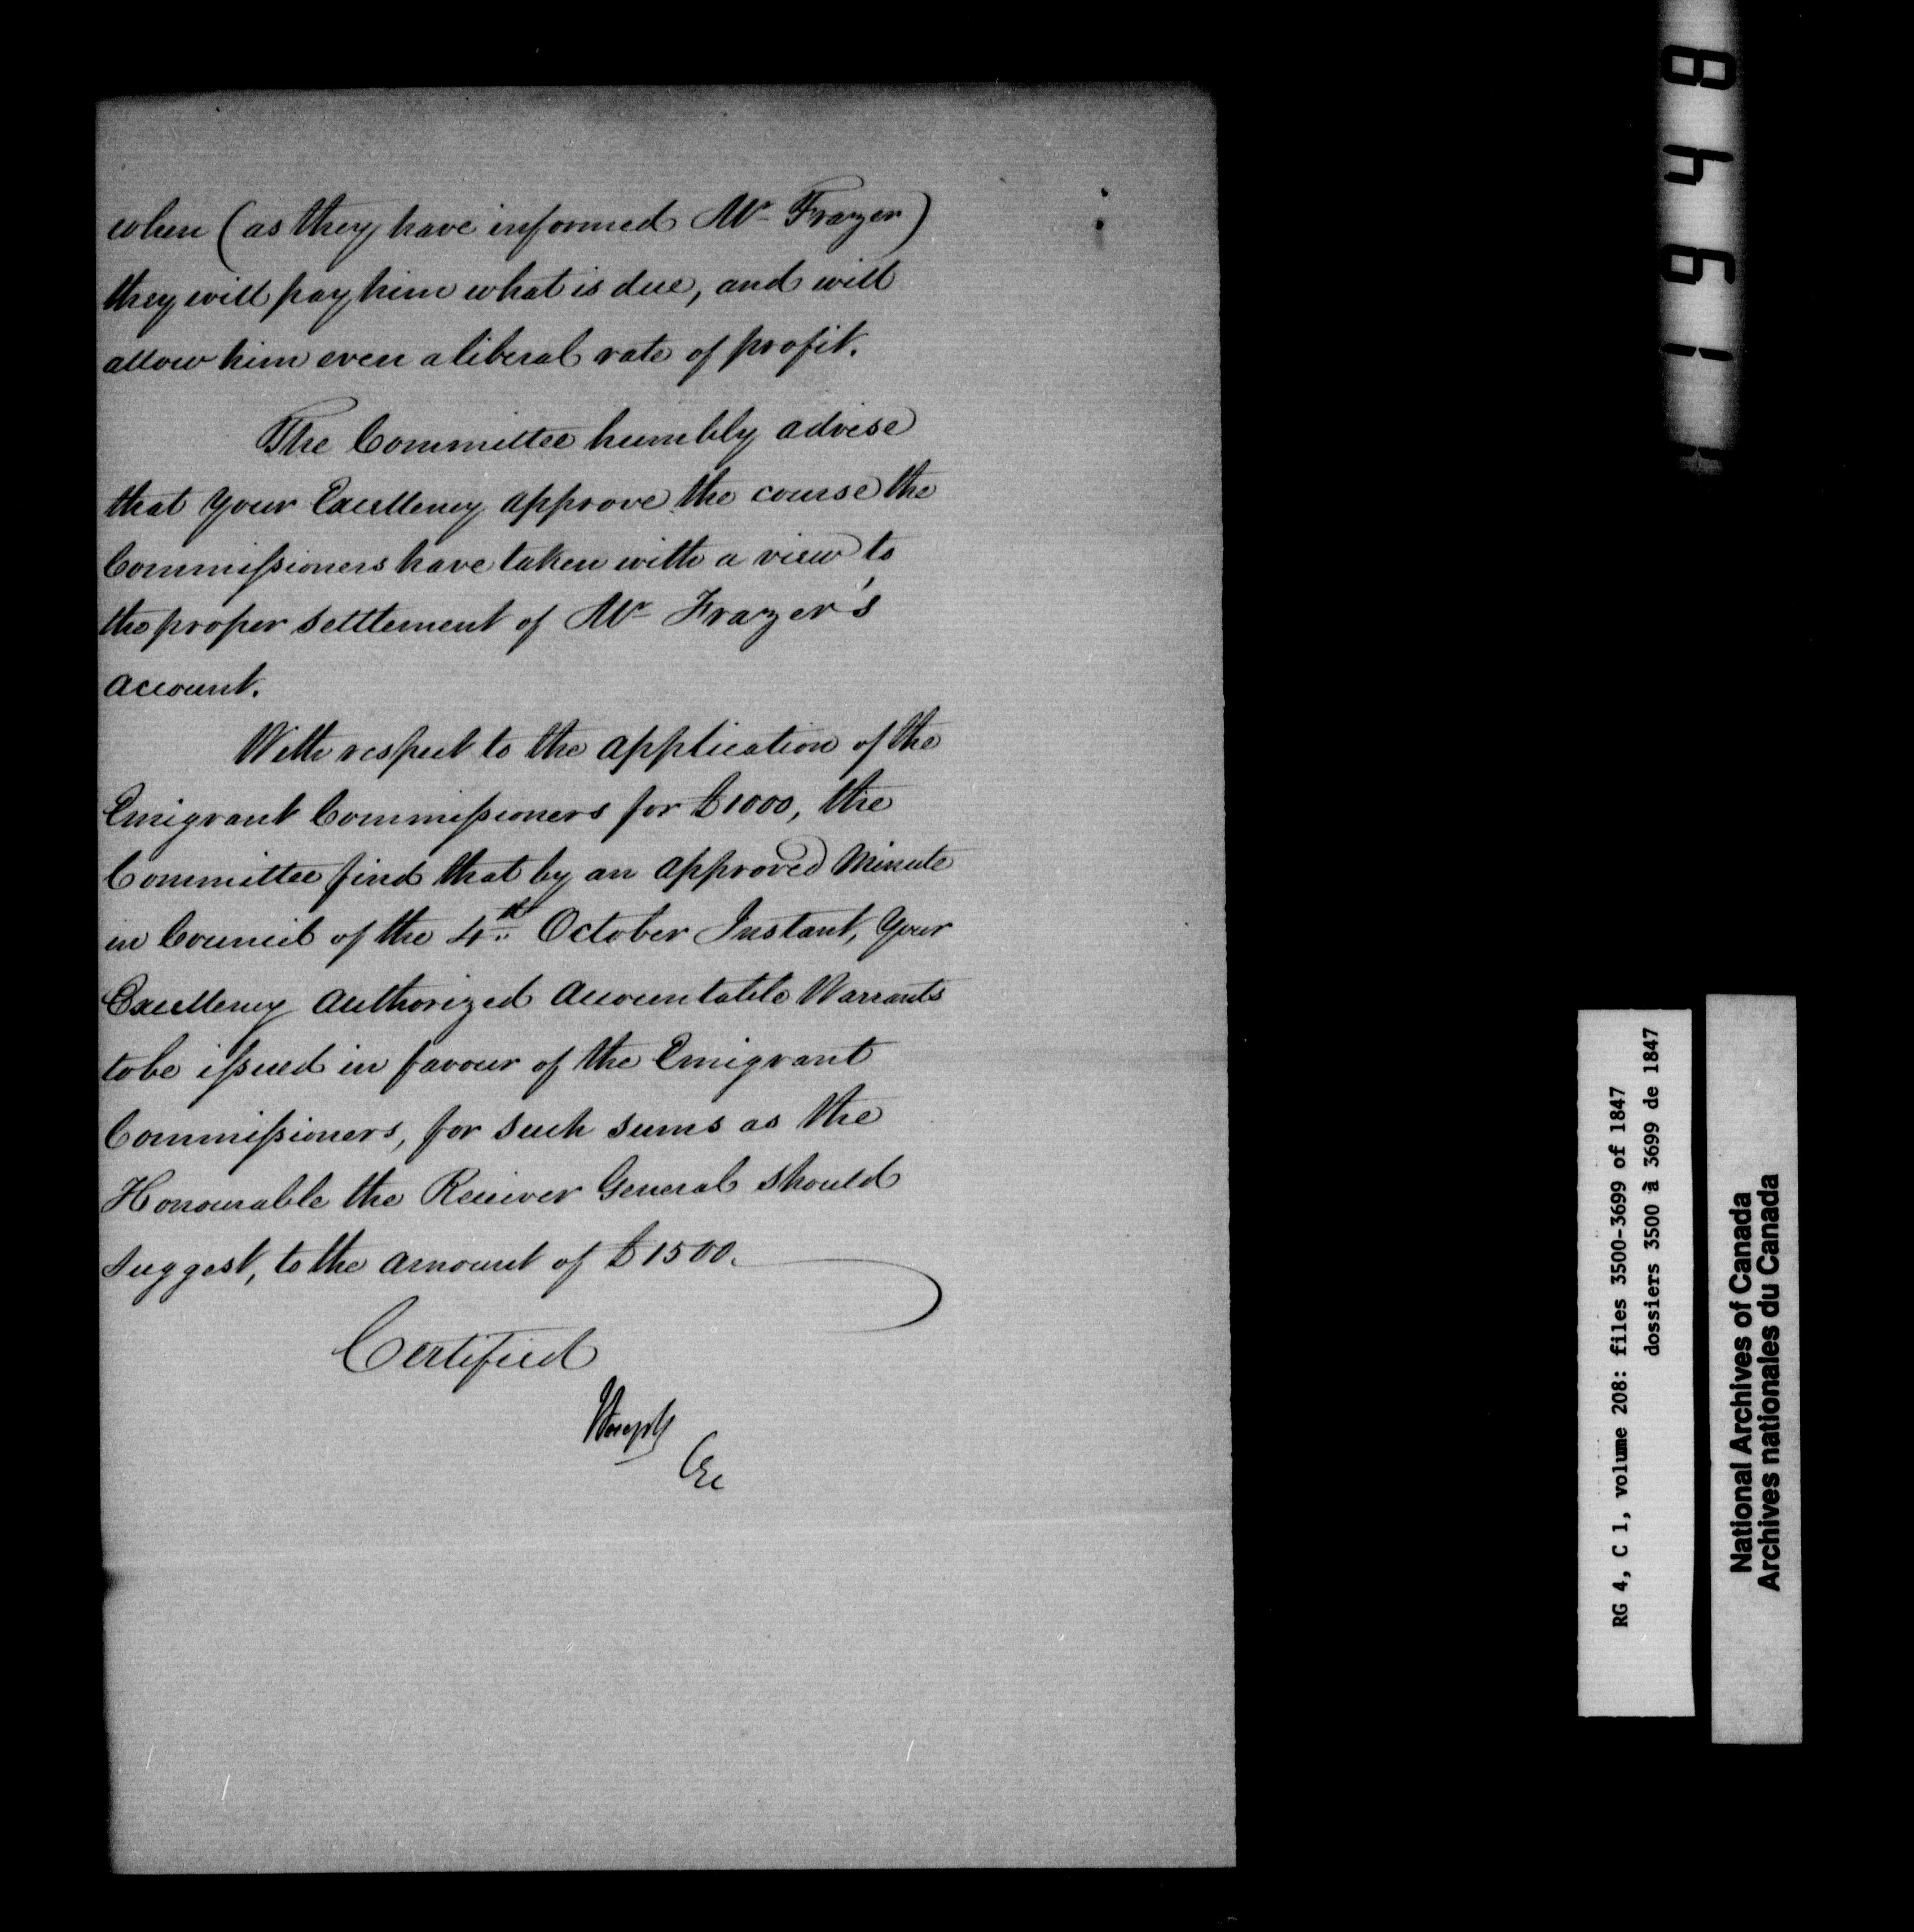 when (as they have informed Mr Frazer)
they will pay him what is due, and will
allow him even a liberal rate of profit.
The Committee humbly advise
that Your Excellency approve the course the
Commissioners have taken with a view to
the proper settlement of Mr Frazer's
account.
With respect to the application of the
Emigrant Commissioners for £1000, the
Committee find that by an approved Minute
in Council of the 4th October Instant, Your
Excellency authorized accountable Warrants
to be issued in favour of the Emigrant
Commissioners, for such sums as the
Honourable the Receiver General should
suggest, to the amount of £1500.
Certified
RG 4, C 1, volume 208: files 3500-3699 of 1847
dossiers 3500 à 3699 de 1847
National Archives of Canada
Archives nationales du Canada